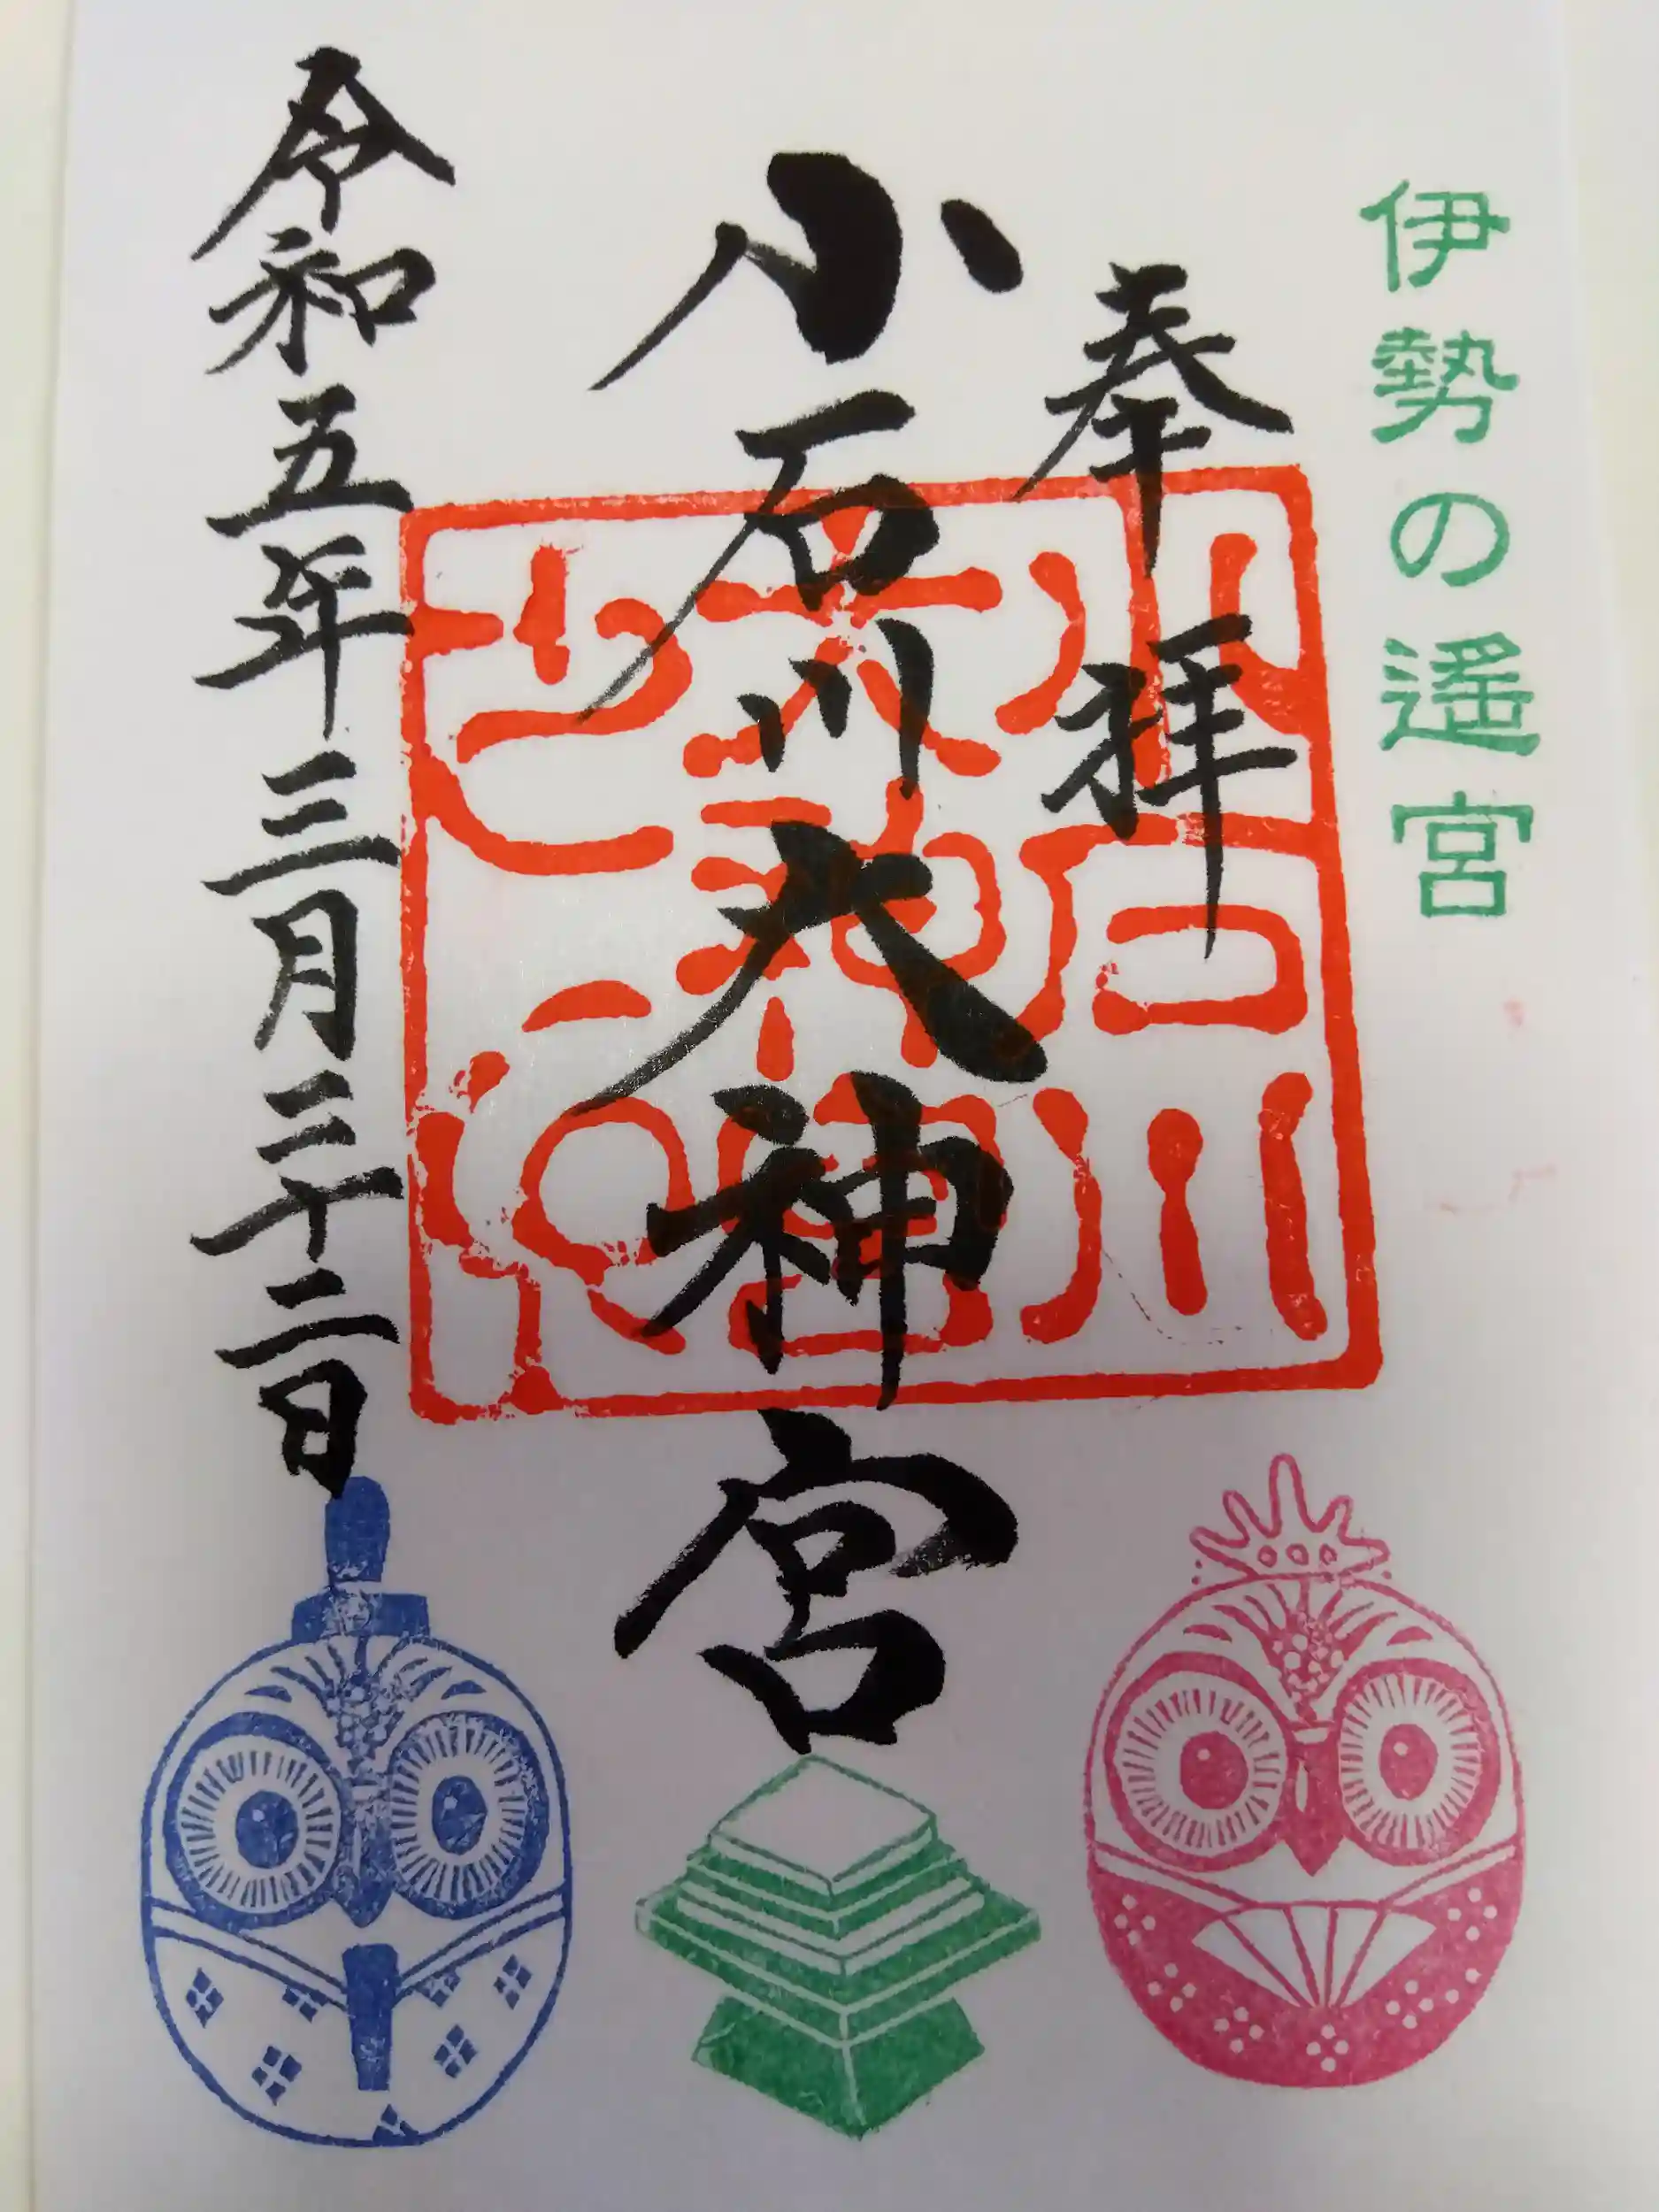 伊勢の遙宮
奉拝
小石川大神宮
小石川
大神宮
之印
令和五年三月二十二日